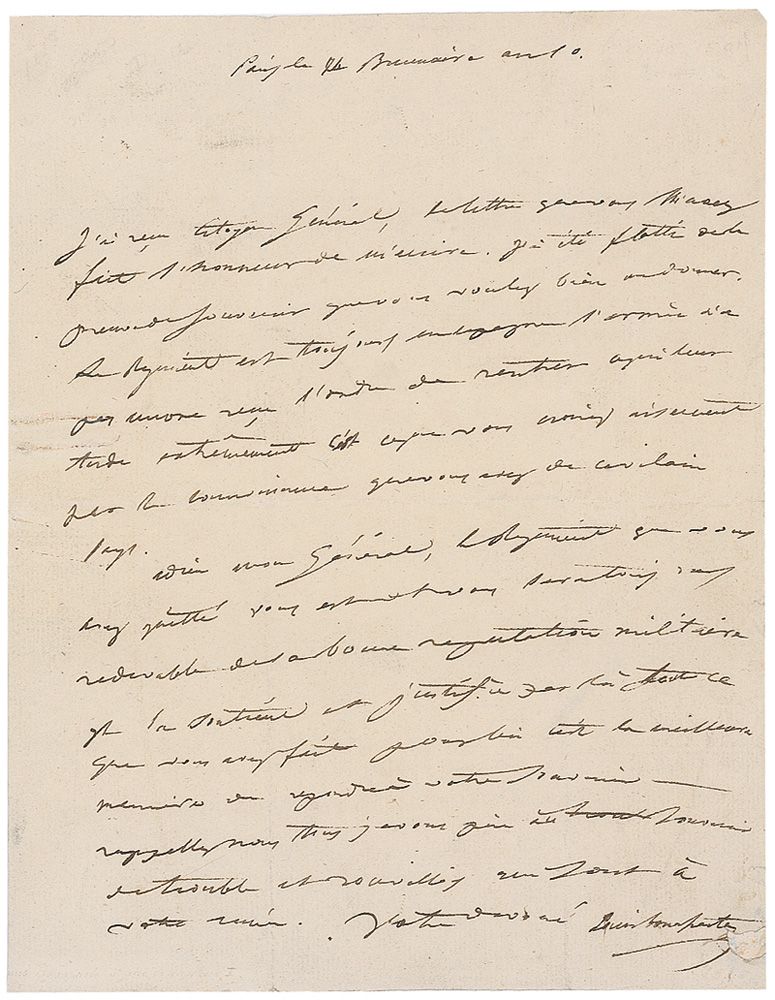 Paris le Brumaire an 10.
J'ai reçu Citoyen Général, la lettre que vous m'avez
fait l'honneur de m'écrire. j'ai été flatté de la
preuve de souvenir que vous voulez bien me donner.
Le Régiment est toujours en espagne l'armée n'a
pas encore reçu l'ordre de rentrer aquileur
tarde extrêmement c'est ce que vous croirez aisement
par la connoissance que vous avez de ce vilain
Pays.
adieu mon Général, le Régiment que vous
avez quitté vous est et vous sera toujours
redevable de sa bonne reputation militaire
et la soutiend et justifie par là ce
que vous avez fait pour lui c'est la meilleure
manière de repondre à votre souvenir
rappellez nous tous je vous prie au souvenir
de et qui sont à
votre . Votre devoué Louis bonaparte